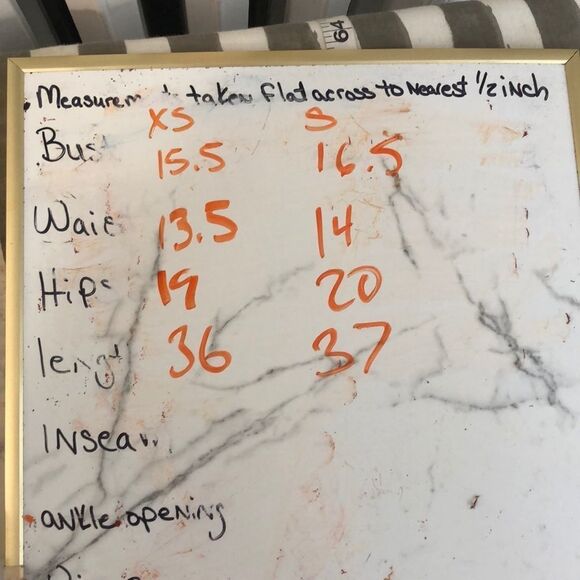 64
Measurem taken flat across to Nearest 1/2 iNch
XS S
Bus 15.5 16.5
Wais 13.5 14
Hips 19 20
lengt 36 37
INseam
aNkle opening